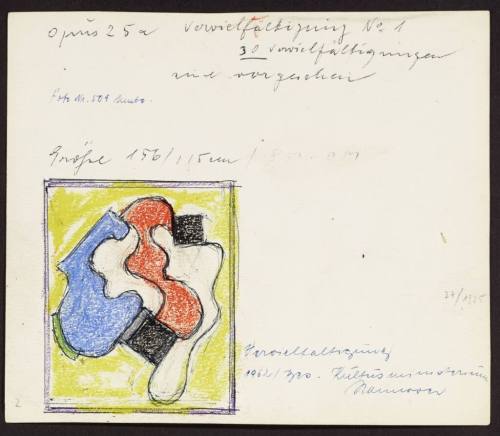 opus 25a Vervielfältigung No 1
30 Vervielfältigungen
sind vorgesehen
Foto Nr. 509
Größe 156/115 cm
27/1925
Vervielfältigung
1962 / Kultusministerium
Hannover
2